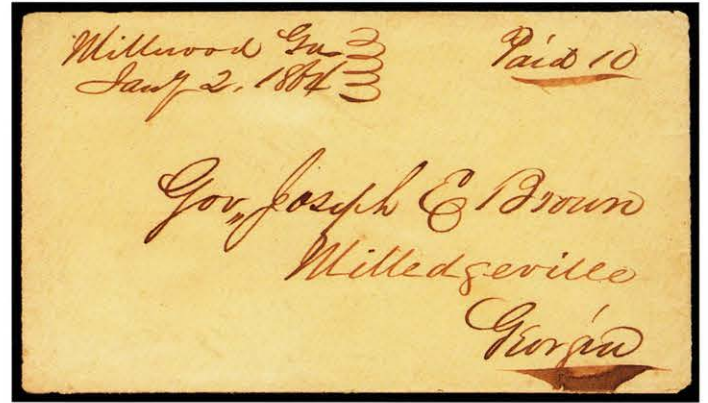 Millwood Ga
Paid 10
Jany 2, 1864
Gov, Joseph E Brown
Milledgeville
Georgia